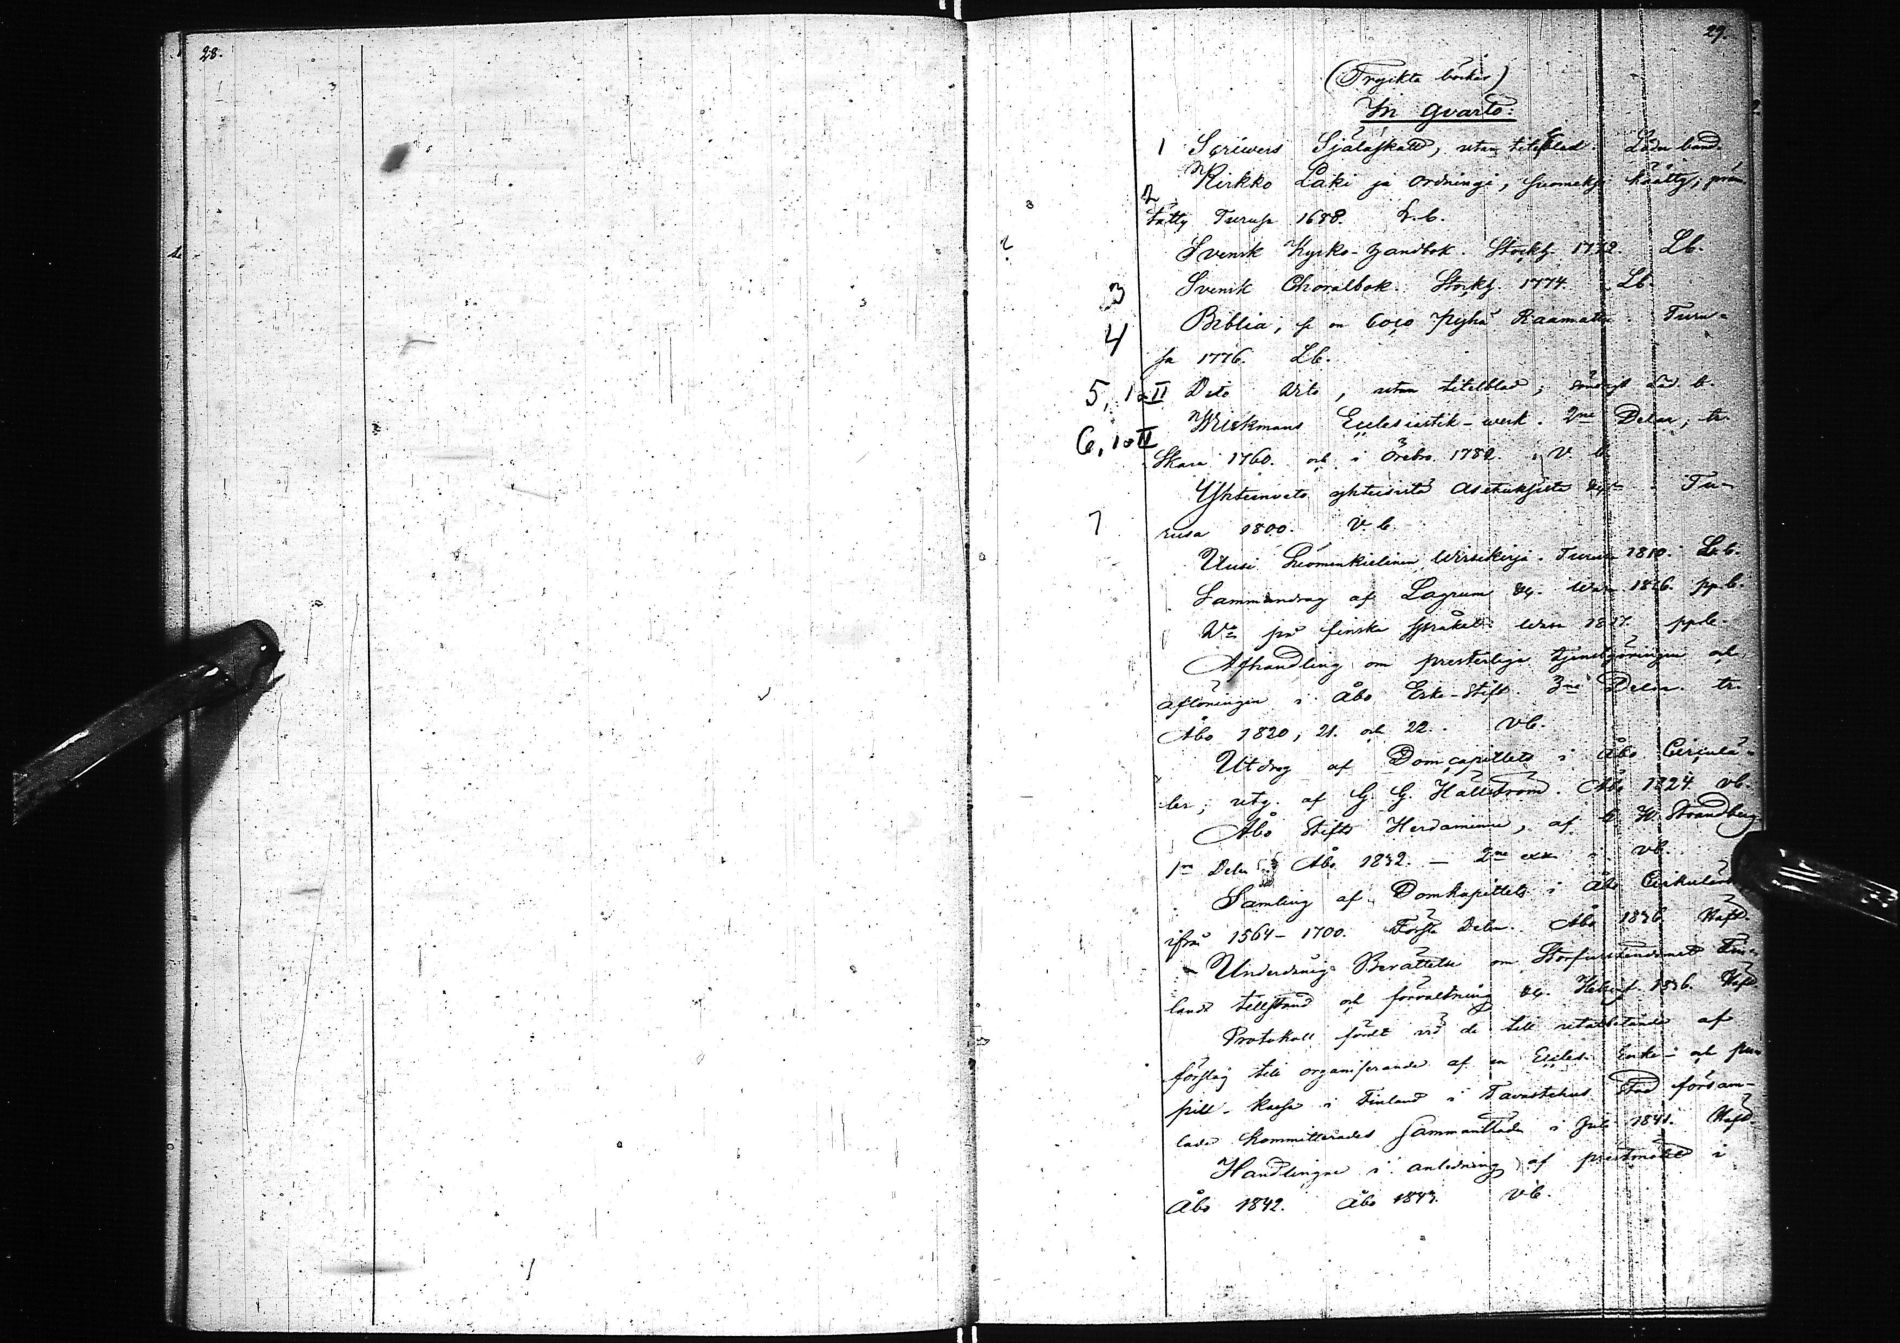 28.
29.
(Tryckta böcker)
In Qvarto:
1 Scrivers Själaskatt, utan titelblad. Läderband
2 Kirkko Laki ja Ordningi, suomeksi käätty, prän-
tätty Turusa 1688. L.b.
Svensk Kyrko-Handbok. Stockh. 1772. Lb.
3 Svensk Choralbok. Stockh. 1774. Lb.
4 Biblia, se on coco Pyhä Raamattu. Turu-
sa 1776. Lb.
5, I o II Dito dito, utan titelblad, Läd. b.
6, I o II Wiskmans Ecclesiastik-werk. 2ne Delar, tr.
Skara 1760. och i Örebro 1782. V. b.
7 Yhteinveto yhteisistä Asetuksista Tu-
rusa 1800. V. b.
Uusi Suomenkielinen Wirsikirja. Turusa 1810. Lb.
Sammandrag af Lagrum &c. Wasa 1826. pp.b.
Do på finska språket. Wasa 1827. ppb.
Afhandling om presterliga tjenstgöringen och
aflöningen i Åbo Erke-Stift. 3ne Delar. tr.
Åbo 1820, 21. och 22. Vb.
Utdrag af Domcapitlets i Åbo Circulä-
rer, utg. af G. G. Hällström. Åbo 1824. vb.
Åbo Stifts Herdaminne, af C. H. Strandberg
1ra Delen Åbo 1832. — 2ne exx. vb.
Samling af Domkapitlets i Åbo Cirkulär
ifrån 1564-1700. Första Delen. Åbo 1836. Häft.
- Underdånig Berättelse om Storfurstendömet Fin-
lands tillstånd och förvaltning &c. Helsingf. 1836. Häft
Protokoll fördt vid de till utarbetande af
förslag till organiserande af en Eccles. Enke- och pu-
pill-kassa i Finland i Tavastehus stad försam-
lade kommitterades sammanträde i Juli 1841. Häft.
Handlingar i anledning af prestmötet i
Åbo 1842. Åbo 1843. vb.